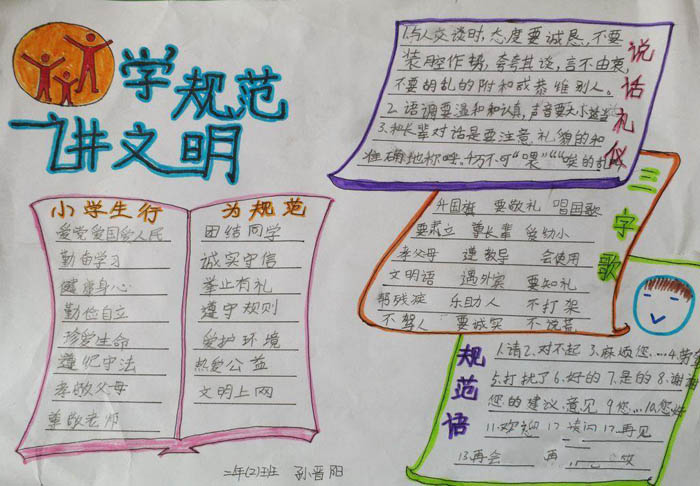 学规范
讲文明
说话礼仪
1.与人交谈时,态度要诚恳,不要
装腔作势,夸夸其谈,言不由衷,
不要胡乱的附和或恭维别人。
2.语调要温和和认真,声音要大小
3.和长辈对话是要注意礼貌的和
准确地称呼。
小学生行
爱党爱国爱人民
勤奋学习
健康身心
勤俭自立
珍爱生命
遵纪守法
孝敬父母
尊敬老师
为规范
团结同学
诚实守信
举止有礼
遵守规则
爱护环境
热爱公益
文明上网
三字歌
升国旗 要敬礼 唱国歌
要肃立 尊长辈 爱幼小
孝父母 遵教导 会使用
文明语 遇外宾 要知礼
帮残疾 乐助人 不打架
不骂人 要诚实 不说谎
规范语
1.请2.对不起3.麻烦您....4.劳
5.打扰了6.好的7.是的8.谢谢
您的建议.意见9您...10.您好
11.欢迎12请问17.再见
13.再会 再
二年(2)班 孙晋阳